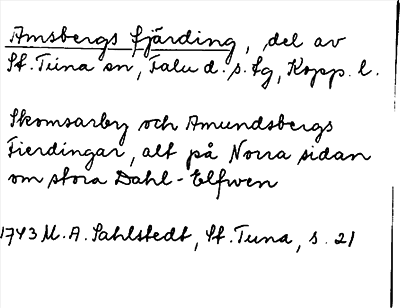 Amsbergs fjärding, del av
St. Tuna sn, Falu d. s. fg, Kopp. l.
Skomsarby och Amundsbergs
Fierdingar, alt på Norra sidan
om stora Dahl-Elfwen
1743 M. A. Sahlstedt, St. Tuna, s. 21